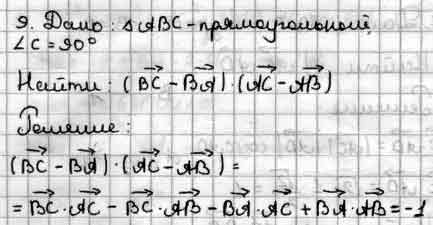 9. Дано: △ABC - прямоугольный,
∠C = 90°
Найти: (BC⃗ - BA⃗) · (AC⃗ - AB⃗)
Решение:
(BC⃗ - BA⃗) · (AC⃗ - AB⃗) =
= BC⃗ · AC⃗ - BC⃗ · AB⃗ - BA⃗ · AC⃗ + BA⃗ · AB⃗ = -1